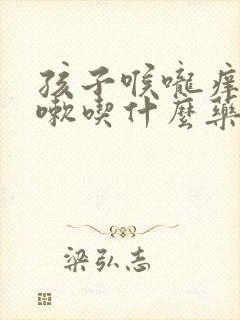 孩子喉嚨痒
嗽喫什麼藥
梁弘志